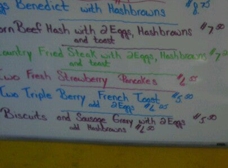 gs Benedict with Hashbrowns $8.75
orn Beef Hash with 2 Eggs, Hashbrowns $7.50
and toast
Country Fried Steak with 2 Eggs, Hashbrowns
and toast
Two Fresh Strawberry Pancakes $6.50
Two Triple Berry French Toast $5.50
add 2 Eggs $6.50
Biscuits and Sausage Gravy with 2 Eggs $5.50
add Hashbrowns